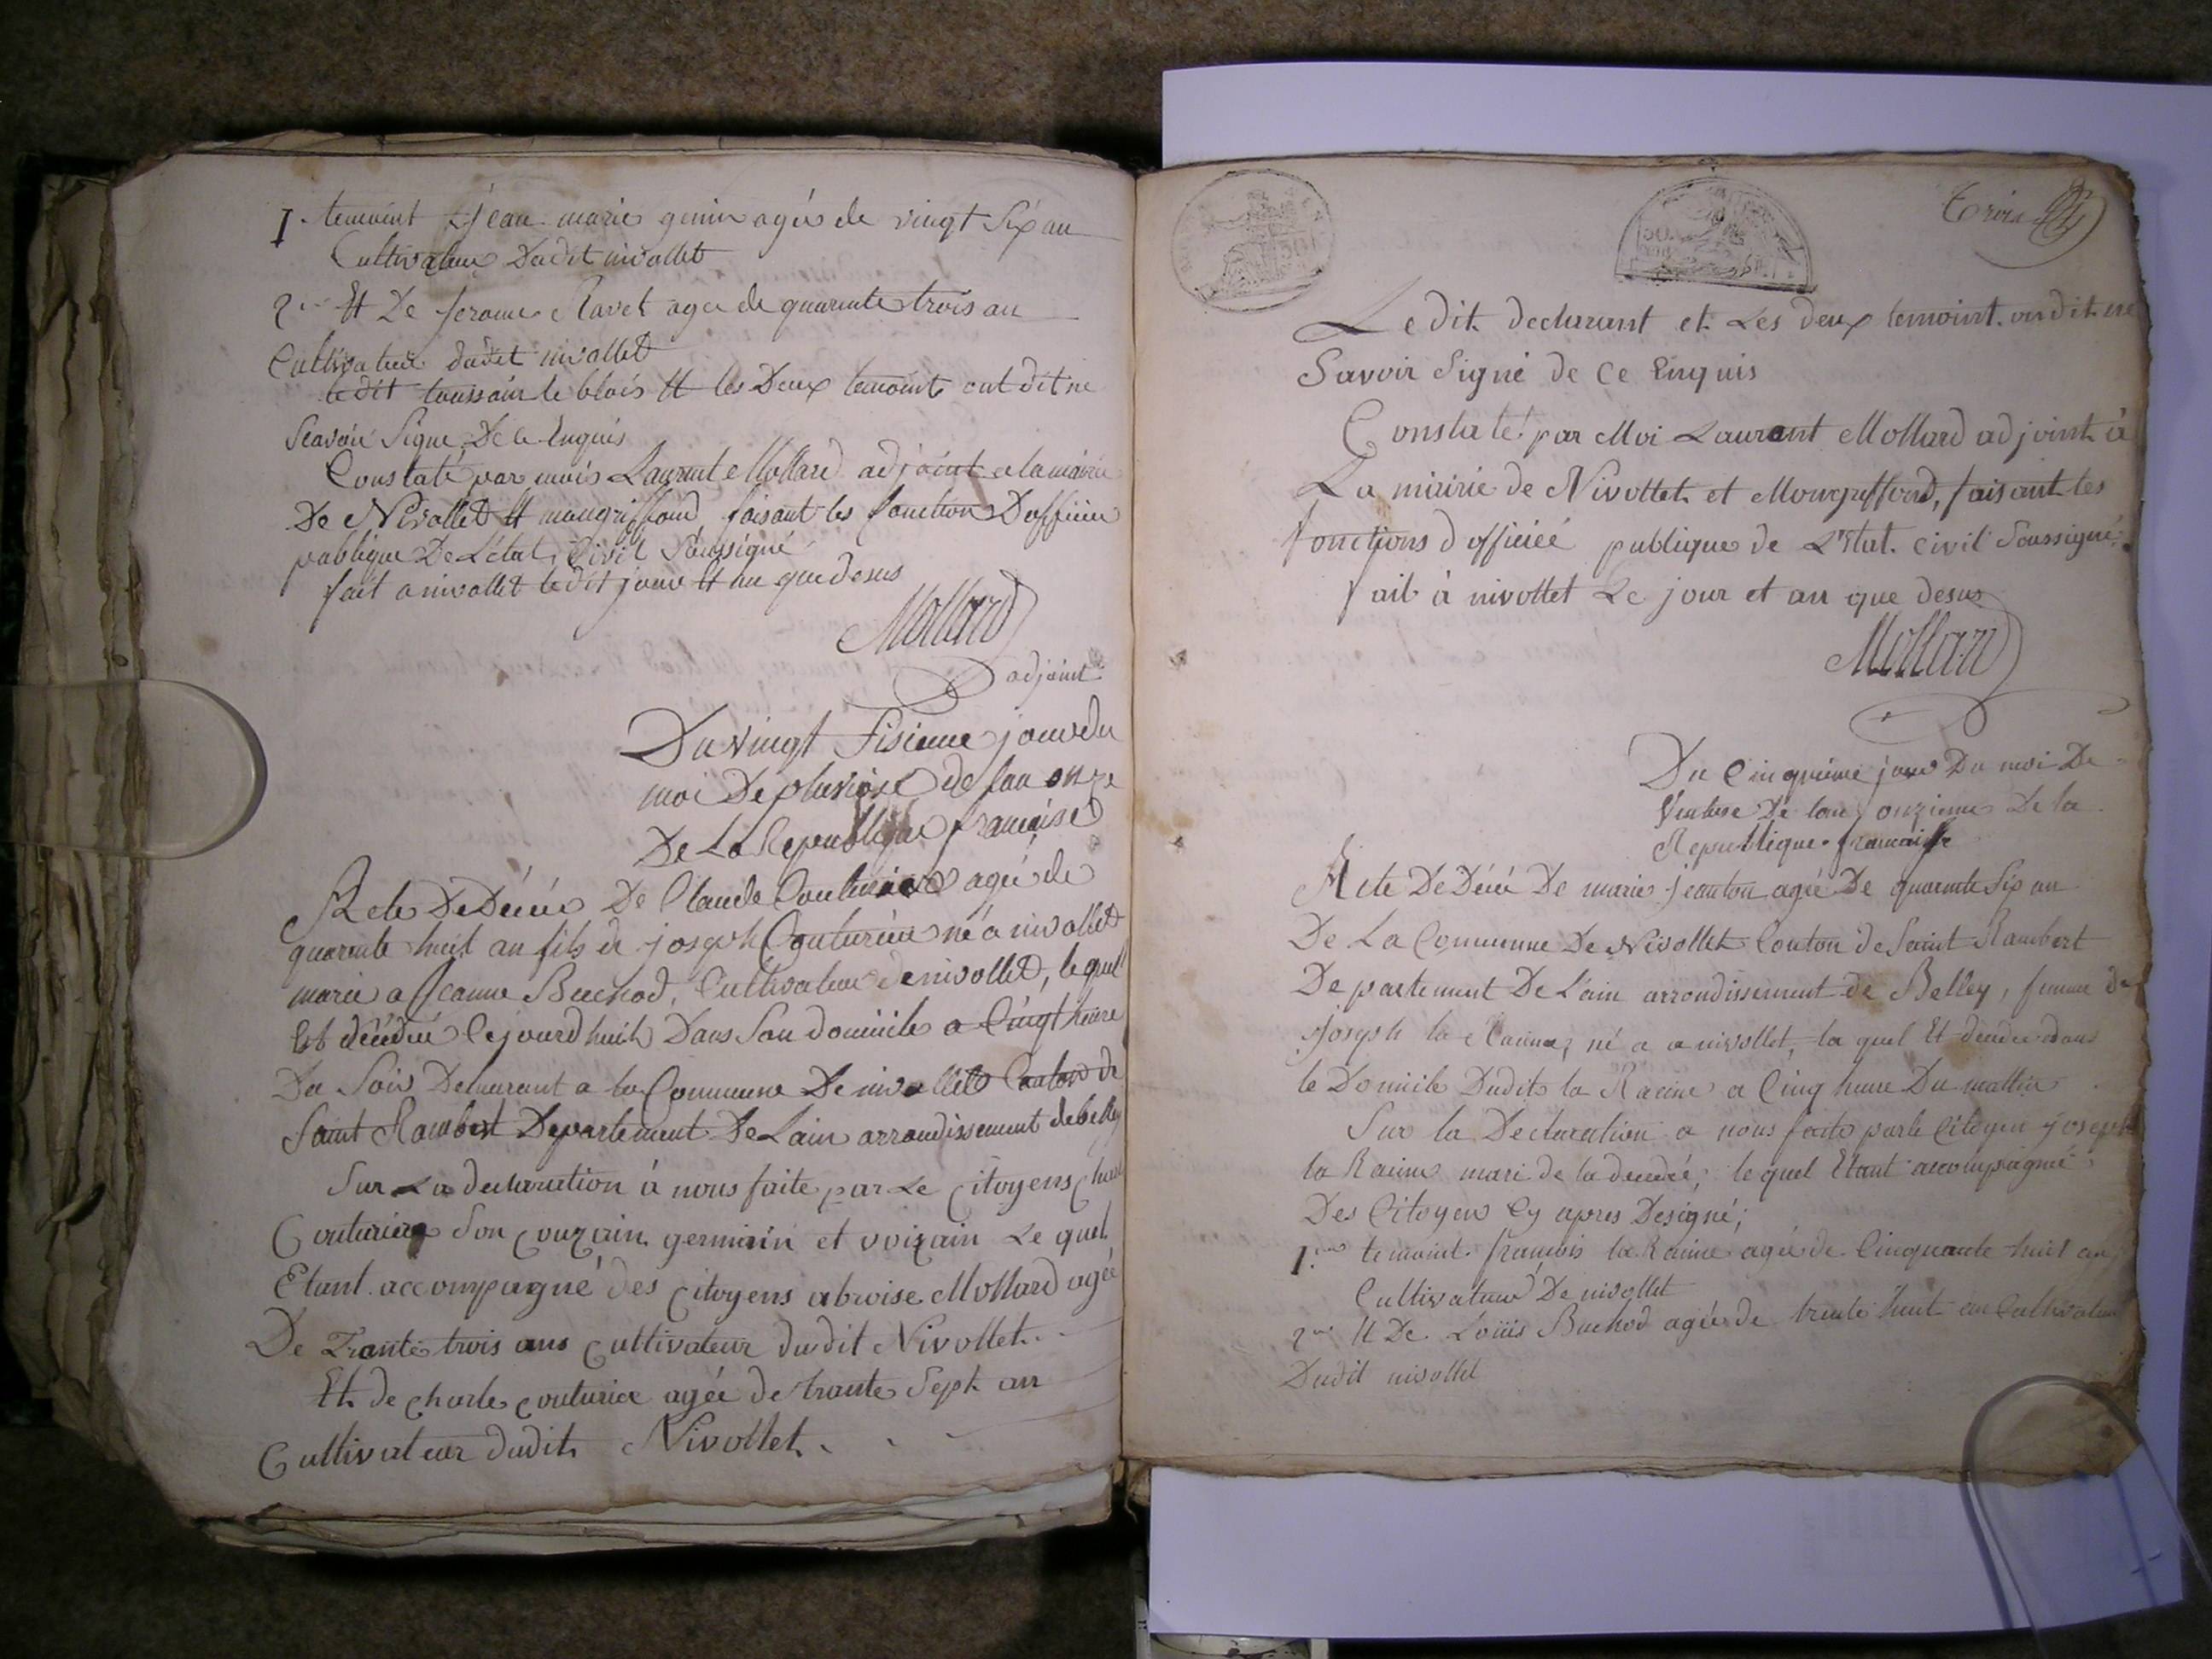 1. temoint jean marie genin agée de vingt six an
Cultivateur Dudit nivollet
2me Et De jerome Ravet agée de quarente trois an
Cultivateur dudit nivollet
le dit toussain le blois Et les Deux temoint ont dit ne
Scavoir Signe De ce Enquis
Constaté par mois Laurent Mollard adjoint a la mairie
De Nivollet Et mongriffond, faisant les fonction D'officier
publique De L'état Civil Soussigné
fait a nivollet le dit jour Et an que desus
Mollard
adjoint
Du vingt Sisieme jour du
moi De pluviose de l'an onze
De La Republique françaised
Acte De Décée De Claude Couturier agée de
quarente huit an fils de joseph Couturier né a nivollet
marie a jeanne Buchod, Cultivateur de nivollet, lequel
Est décédée Cejourdhuit Dans Son domicile a Cinqt heure
Du Soir Demeurant a la Commune De nivollet Canton de
Saint Rambert Departement De Lain arrondissement de belley
Sur La declaration à nous faite par Le Citoyens
Couturier Son Couzain germain et voizain Le quel
Etant accompagné des Citoyens abroise Mollard agée
De Trante trois ans Cultivateur dudit Nivollet
Et de Charle Couturier agée de trante Sept an
Cultivateur dudit Nivollet
Trois
Le dit declarant et Les deux temoint on dit ne
Savoir Signé de Ce Enquis
Constaté par Moi Laurant Mollard adjoint à
La mairie de Nivollet et Mongriffond, faisant les
fonctions d'officiéé publique de L'Etat Civil Soussigné
fait à nivollet Le jour et an que desus
Mollard
Du Cinquieme jour Du moi De
Ventose De lan onzieme De la
Republique francaisse
Acte De Décé De marie jeanton agée De quarente Six an
De La Commune De Nivollet Canton de Saint Rambert
Departement De L'ain arrondissement de Belley, femme de
joseph la Racine, né a a nivollet, la quel Et decedee dans
le Domicile Dudit la Racine a Cinq heure Du mattin
Sur la Declaration a nous faite par le Citoyen joseph
la Racine mari de la decedée; le quel Etant accompagnié
Des Citoyen Cy apres Designé;
1er temoint francois la Racine agée de Cinquante huit an
Cultivateur De nivollet
2me Et De Loüis Buchod agée de trente huit an Cultivateur
Dudit nivollet